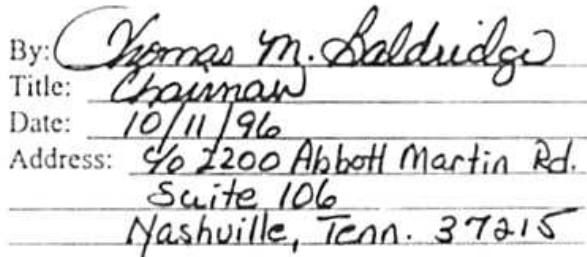 By: Thomas M. Baldridge
Title: Chairman
Date: 10/11/96
Address: c/o 2200 Abbott Martin Rd.
Suite 106
Nashville, Tenn. 37215